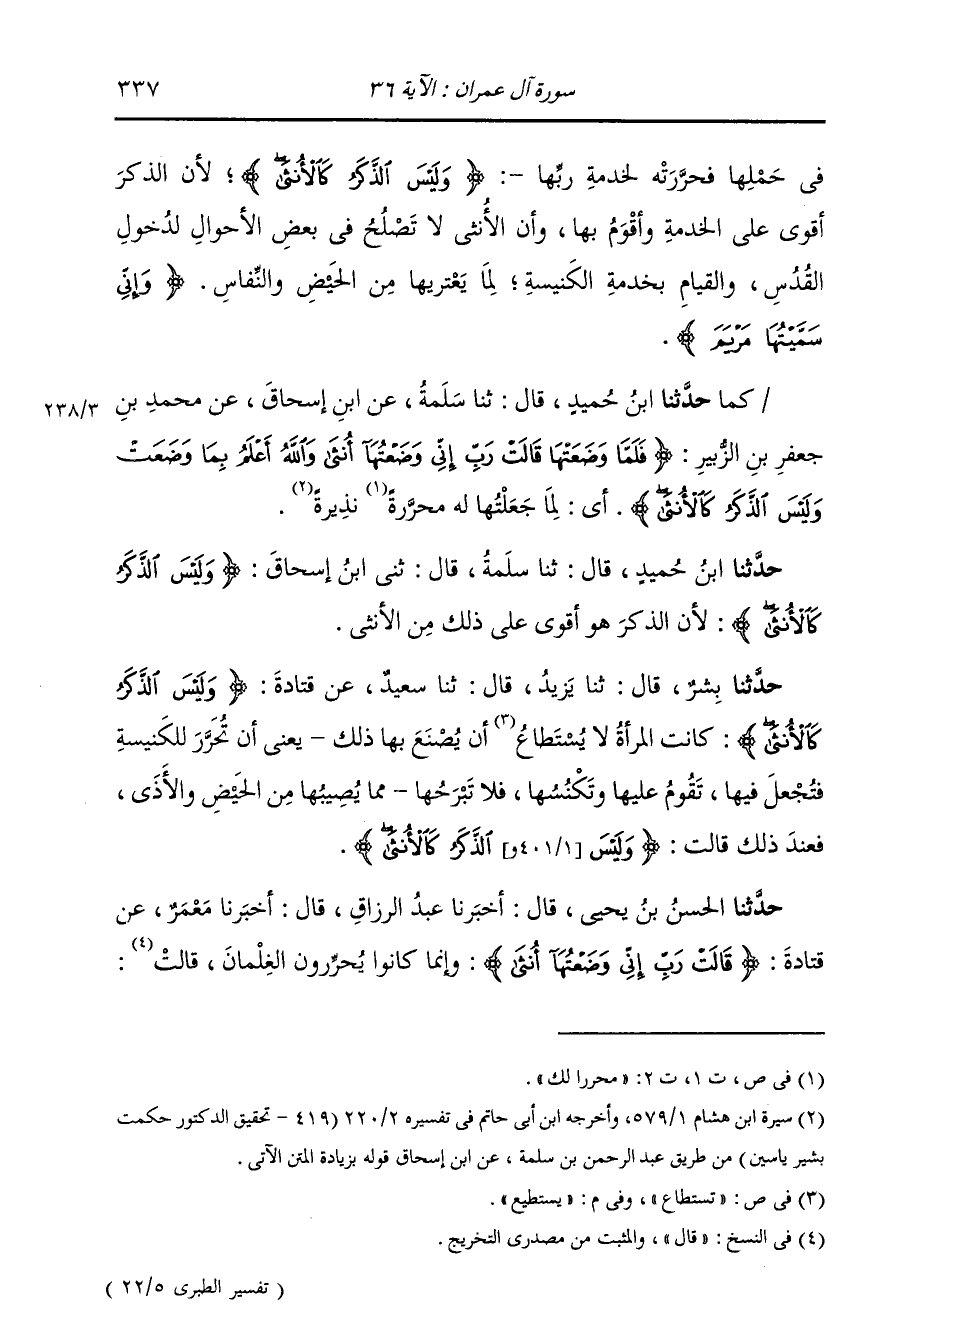 سورة آل عمران : الآية ٣٦ ٣٣٧
فى حَمْلِها فحرَّرَتْه لخدمةِ ربِّها -: ﴿ وَلَيْسَ ٱلذَّكَرُ كَٱلْأُنثَىٰۖ ﴾ ؛ لأن الذكرَ
أقوى على الخدمةِ وأقْوَمُ بها ، وأن الأُنثى لا تَصْلُحُ فى بعضِ الأحوالِ لدُخولِ
القُدُسِ ، والقيامِ بخدمةِ الكَنيسةِ ؛ لِمَا يَعْتريها مِن الحَيْضِ والنِّفاسِ . ﴿ وَإِنِّى
سَمَّيْتُهَا مَرْيَمَ ﴾ .
/ كما حدَّثنا ابنُ حُميدٍ ، قال : ثنا سَلَمةُ ، عن ابنِ إسحاقَ ، عن محمدِ بنِ ٢٣٨/٣
جعفرِ بنِ الزُّبيرِ : ﴿ فَلَمَّا وَضَعَتْهَا قَالَتْ رَبِّ إِنِّى وَضَعْتُهَآ أُنثَىٰ وَٱللَّهُ أَعْلَمُ بِمَا وَضَعَتْ
وَلَيْسَ ٱلذَّكَرُ كَٱلْأُنثَىٰۖ ﴾ . أى : لِمَا جَعَلْتُها له محرَّرةً(١) نذيرةً(٢) .
حدَّثنا ابنُ حُميدٍ ، قال : ثنا سلَمةُ ، قال : ثنى ابنُ إسحاقَ : ﴿ وَلَيْسَ ٱلذَّكَرُ
كَٱلْأُنثَىٰۖ ﴾ : لأن الذكرَ هو أقوى على ذلك مِن الأنثى .
حدَّثنا بِشرٌ ، قال : ثنا يَزيدُ ، قال : ثنا سعيدٌ ، عن قتادةَ : ﴿ وَلَيْسَ ٱلذَّكَرُ
كَٱلْأُنثَىٰۖ ﴾ : كانت المرأةُ لا يُسْتَطاعُ(٣) أن يُصْنَعَ بها ذلك - يعنى أن تُحَرَّرَ للكَنيسةِ
فتُجْعلَ فيها ، تَقُومُ عليها وتَكْنُسُها ، فلا تَبْرَحُها - مما يُصِيبُها مِن الحَيْضِ والأَذَى ،
فعندَ ذلك قالت : ﴿ وَلَيْسَ [٤٠١/١و] ٱلذَّكَرُ كَٱلْأُنثَىٰۖ ﴾ .
حدَّثنا الحسنُ بنُ يحيى ، قال : أخبَرنا عبدُ الرزاقِ ، قال : أخبَرنا مَعْمَرٌ ، عن
قتادةَ : ﴿ قَالَتْ رَبِّ إِنِّى وَضَعْتُهَآ أُنثَىٰ ﴾ : وإنما كانوا يُحرِّرون الغِلْمانَ ، قالتْ(٤) :
(١) فى ص ، ت ١ ، ت ٢ : « محررا لك » .
(٢) سيرة ابن هشام ٥٧٩/١ ، وأخرجه ابن أبى حاتم فى تفسيره ٢٢٠/٢ (٤١٩ - تحقيق الدكتور حكمت
بشير ياسين) من طريق عبد الرحمن بن سلمة ، عن ابن إسحاق قوله بزيادة المتن الآتى .
(٣) فى ص : « تستطاع » ، وفى م : « يستطيع » .
(٤) فى النسخ : « قال » ، والمثبت من مصدرى التخريج .
( تفسير الطبرى ٢٢/٥ )